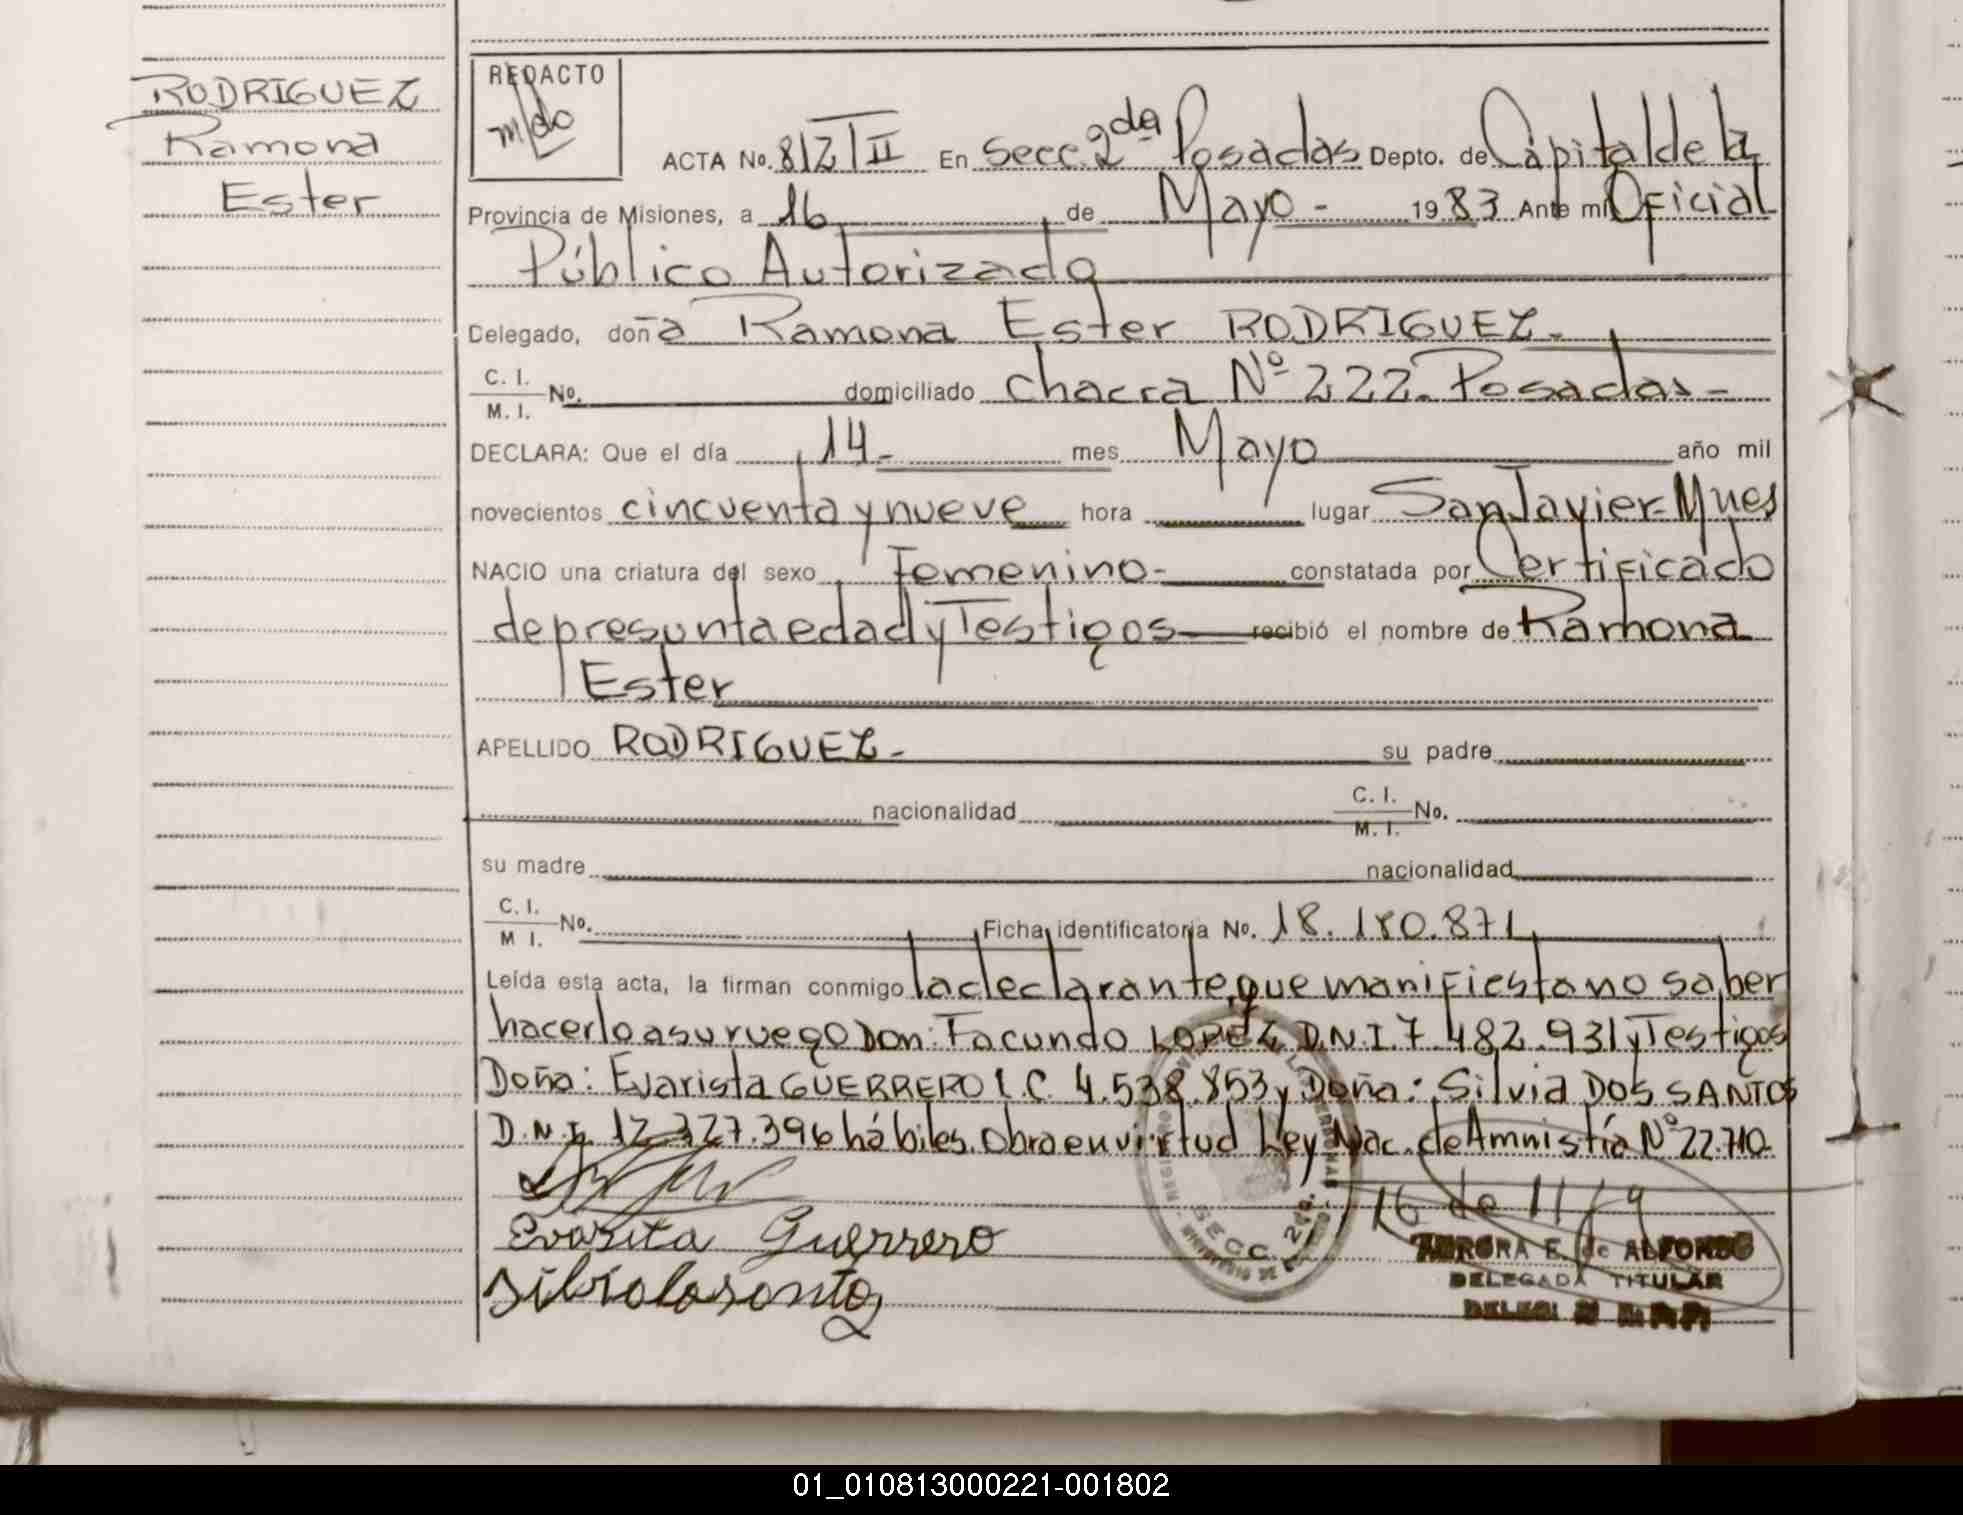 RODRIGUEZ
Ramona
Ester
REDACTO
ACTA No. 812 T II En Secc. 2da Posadas Depto. de Capital de la
Provincia de Misiones, a 16 de Mayo - 1983 Ante mi Oficial
Público Autorizado
Delegado, doña Ramona Ester RODRIGUEZ.
C. I. / M. I. No. domiciliado chacra Nº 222. Posadas -
DECLARA: Que el día 14 - mes Mayo año mil
novecientos cincuenta y nueve hora lugar San Javier - Mnes
NACIO una criatura del sexo Femenino - constatada por Certificado
de presunta edad y Testigos recibió el nombre de Ramona
Ester
APELLIDO RODRIGUEZ - su padre
nacionalidad C. I. / M. I. No.
su madre nacionalidad
C. I. / M I. No. Ficha identificatoria No. 18.180.871
Leída esta acta, la firman conmigo la declarante, que manifiesta no saber
hacerlo a su ruego Don: Facundo LOPEZ D.N.I 7.482.931 y Testigos
Doña: Evarista GUERRERO L.C. 4.538.853 y Doña: Silvia DOS SANTOS
D.N.I. 12.327.396 hábiles. Obra en virtud Ley Nac. de Amnistía Nº 22.710.
Evarista Guerrero
SECC. 2da.
AURORA E. de ALFONSO
DELEGADA TITULAR
01_010813000221-001802